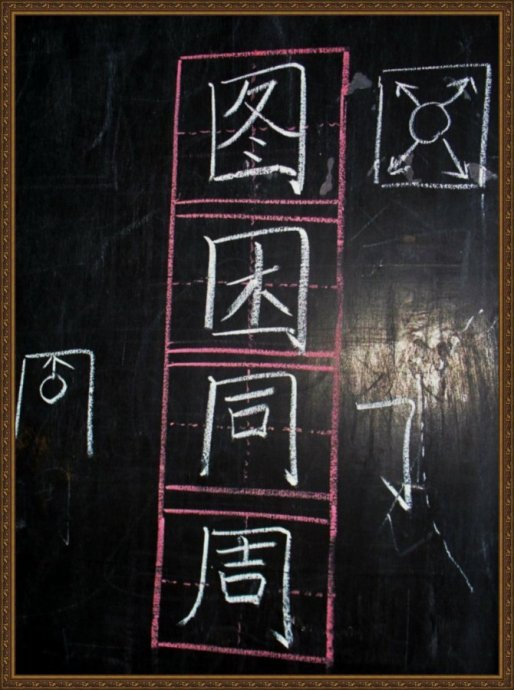 图
困
同
周